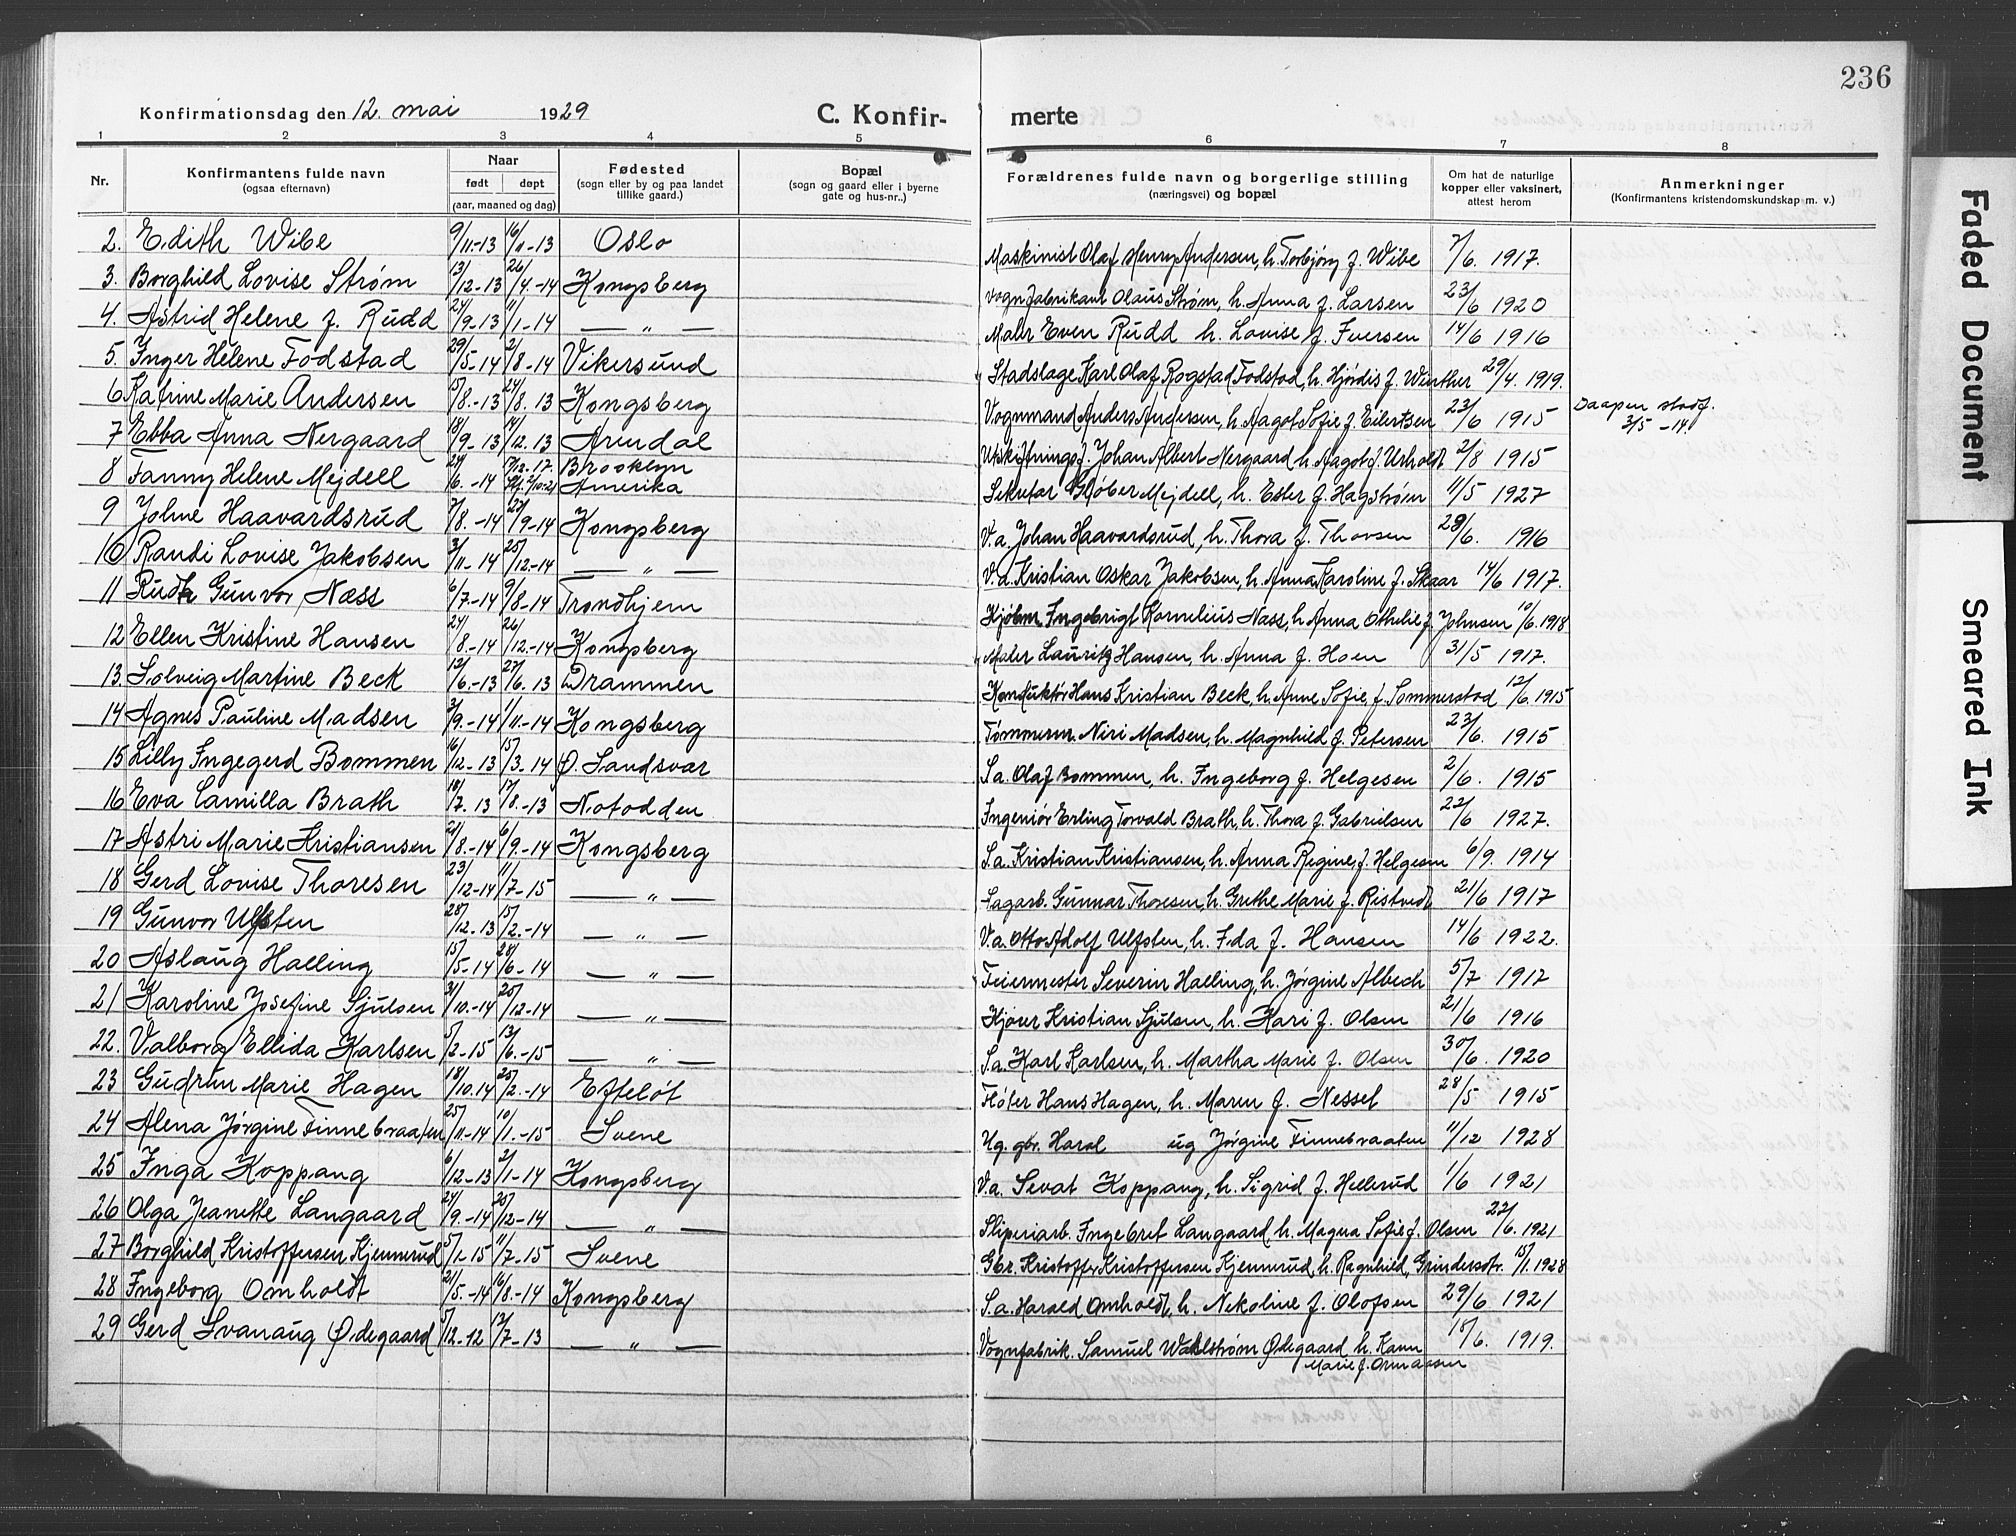 236
Konfirmationsdag den 12. mai 1929 C. Konfir- merte
1 2 3 4 5 6 7 8
Nr.
Konfirmantens fulde navn
(ogsaa efternavn)
Naar
født døpt
(aar, maaned og dag)
Fødested
(sogn eller by og paa landet
tillike gaard.)
Bopæl
(sogn og gaard eller i byerne
gate og hus-nr.)
Forældrenes fulde navn og borgerlige stilling
(næringsvei) og bopæl
Om hat de naturlige
kopper eller vaksinert,
attest herom
Anmerkninger
(Konfirmantens kristendomskundskap m. v.)
2. Edith Wibe 9/11-13 16/11-13 Oslo Maskinist Olaf Henry Andersen, h. Torbjørg f. Wibe 7/6. 1917.
3. Borghild Lovise Strøm 13/12-13 26/4.-14 Kongsberg Vognfabrikant Olaus Strøm, h. Anna f. Larsen 23/6 1920
4. Astrid Helene f. Rudd 24/9-13 11/1-14 — " — Maler Even Rudd h. Lovise f. Iversen 14/6 1916
5. Inger Helene Fodstad 29/5-14 2/8-14 Vikersund Stadslage Karl Olaf Rogstad Fodstad, h. Hjördis f. Winther 29/4. 1919.
6 Katrine Marie Andersen 15/8.-13 24/8. 13 Kongsberg Vognmand Anders Andersen, h. Aagot Sofie f. Eilertsen 23/6 1915 Daapen stadf.
3/5 -14.
7 Ebba Anna Nergaard 18/9. 13 14/12. 13 Arendal Utskiftningsf. Johan Albert Nergaard h. Aagot f. Urholdt 2/8 1915
8 Fanny Helene Mejdell 24/6. -14 7/12-17. Brooklyn
Amerika Sekretær Gløber Mejdell, h. Ester f. Hagstrøm 11/5 1927
9 Johne Haavardsrud 7/8. -14 27/9-14 Kongsberg V.a. Johan Haavardsrud, h. Thora f. Thorsen 28/6. 1916
10 Randi Lovise Jakobsen 3/11-14 25/12-14 — " — V.a. Kristian Oskar Jakobsen, h. Anna Karoline f. Skaar 14/6 1917.
11 Ruth Gunvor Næss 6/7-14 9/8-14 Trondhjem Kjøbm. Ingebrigt Kornelius Næss, h. Anna Othelie f. Johnsen 10/6. 1918
12 Ellen Kristine Hansen 24/8.-14 26/12.-14 Kongsberg Maler Lauritz Hansen, h. Anna f. Hoen 31/5 1917.
13. Solveig Martine Beck 12/6.-13 27/6. 13 Drammen Konduktør Hans Kristian Beck, h. Anne Sofie, f. Sommerstad 12/6. 1915
14 Agnes Pauline Madsen 3/9.-14 1/11.-14 Kongsberg Tømmerm. Niri Madsen, h. Magnhild f. Petersen 23/6. 1915
15 Lilly Ingegerd Bommen 16/12-13 15/3. 14 Ø. Sandsvær S.a. Olaf Bommen, h. Ingeborg f. Helgesen 2/6. 1915
16 Eva Camilla Brath 18/7. 13 17/8.-13 Notodden Ingeniør Erling Torvald Brath, h. Thora f. Gabrielsen 22/6 1927.
17 Astri Marie Kristiansen 21/8.-14 6/9.-14 Kongsberg S.a. Kristian Kristiansen, h. Anna Regine, f. Helgesen 6/9. 1914
18 Gerd Lovise Thoresen 23/12-14 11/7-15 — " — Sagarb. Gunnar Thoresen, h. Grethe Marie f. Ristvedt 21/6 1917
19 Gunvor Ulfsten 28/12.13 15/2.-14 — " — V.a. Otto Adolf Ulfsten, h. Ida f. Hansen 14/6 1922.
20 Aslaug Halling 15/5-14 28/6-14 — " — Feiermester Severin Halling, h. Jørgine Albech 5/7 1917
21 Karoline Josefine Sjulsen 3/10.-14 25/12-14 — " — Kjører Kristian Sjulsen, h. Kari f. Olsen 21/6 1916
22. Valborg Ellida Karlsen 5/2-15 13/6.-15 — " — S.a. Karl Karlsen, h. Martha Marie f. Olsen 30/6. 1920
23 Gudrun Marie Hagen 18/10.14 25/2.-14 Efteløt Fløter Hans Hagen, h. Maren f. Nessel 28/5 1915
24 Alena Jørgine Finnebraaten 25/11-14 10/1.-15 Svene Ug. gbr. Haral ug Jørgine Finnebraaten 11/12 1928
25 Inga Koppang 6/12-13 2/1-14 Kongsberg V.a. Sevat Koppang, h. Sigrid f. Hellerud 1/6 1921
26 Olga Jeanette Langaard 24/9.-14 20/12-14 — " — Sliperiarb. Ingebret Langaard h. Magna Sofie f. Olsen 22/6. 1921
27 Borghild Kristoffersen Kjennerud 5/1-15 11/7-15 Svene Gbr. Kristoffer Kristoffersen Kjennerud, h. Ragnhild, Grindersdtr. 15/1. 1928
28 Ingeborg Omholdt 21/5.-14 16/8-14 Kongsberg S.a. Harald Omholdt, h. Nikoline f. Olofsen 29/6 1921
29 Gerd Svanaug Ødegaard 5/12-12 12/7-13 — " — Vognfabrik. Samuel Wahlstrøm Ødegaard h. Karen
Marie f. Ormaasen 15/6. 1919.
Faded Document
Smeared Ink